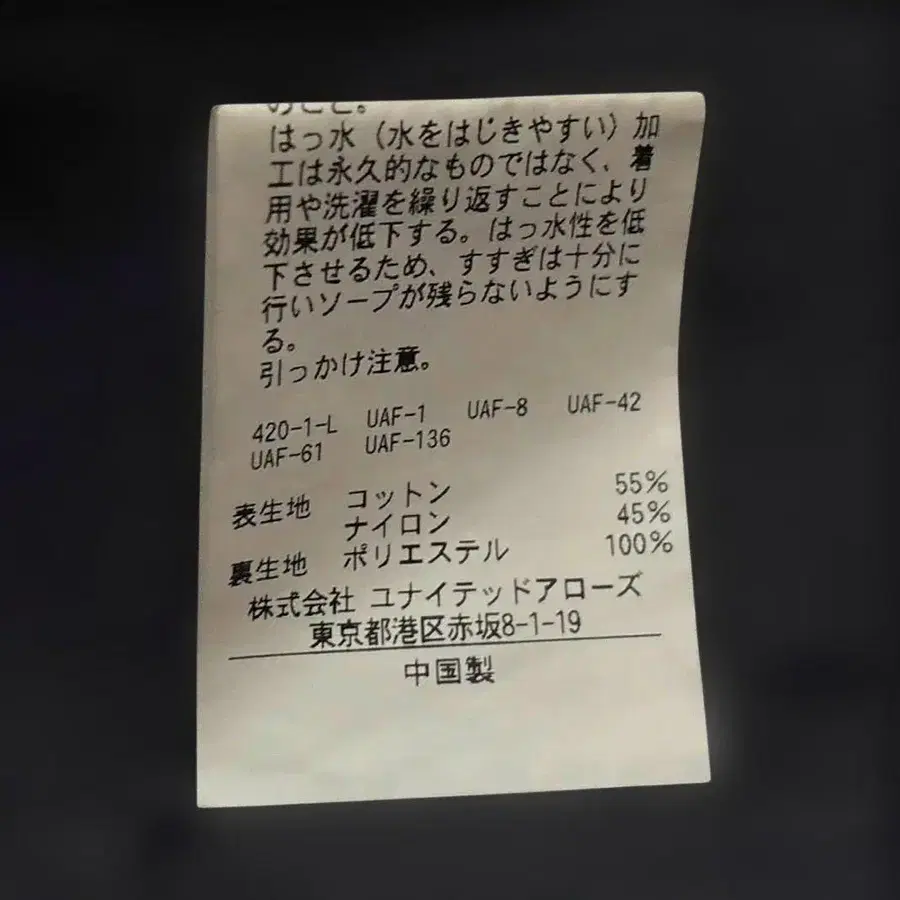 のこと。
はっ水（水をはじきやすい）加
工は永久的なものではなく、着
用や洗濯を繰り返すことにより
効果が低下する。はっ水性を低
下させるため、すすぎは十分に
行いソープが残らないようにす
る。
引っかけ注意。
420-1-L UAF-1 UAF-8 UAF-42
UAF-61 UAF-136
表生地 コットン 55%
ナイロン 45%
裏生地 ポリエステル 100%
株式会社 ユナイテッドアローズ
東京都港区赤坂8-1-19
中国製